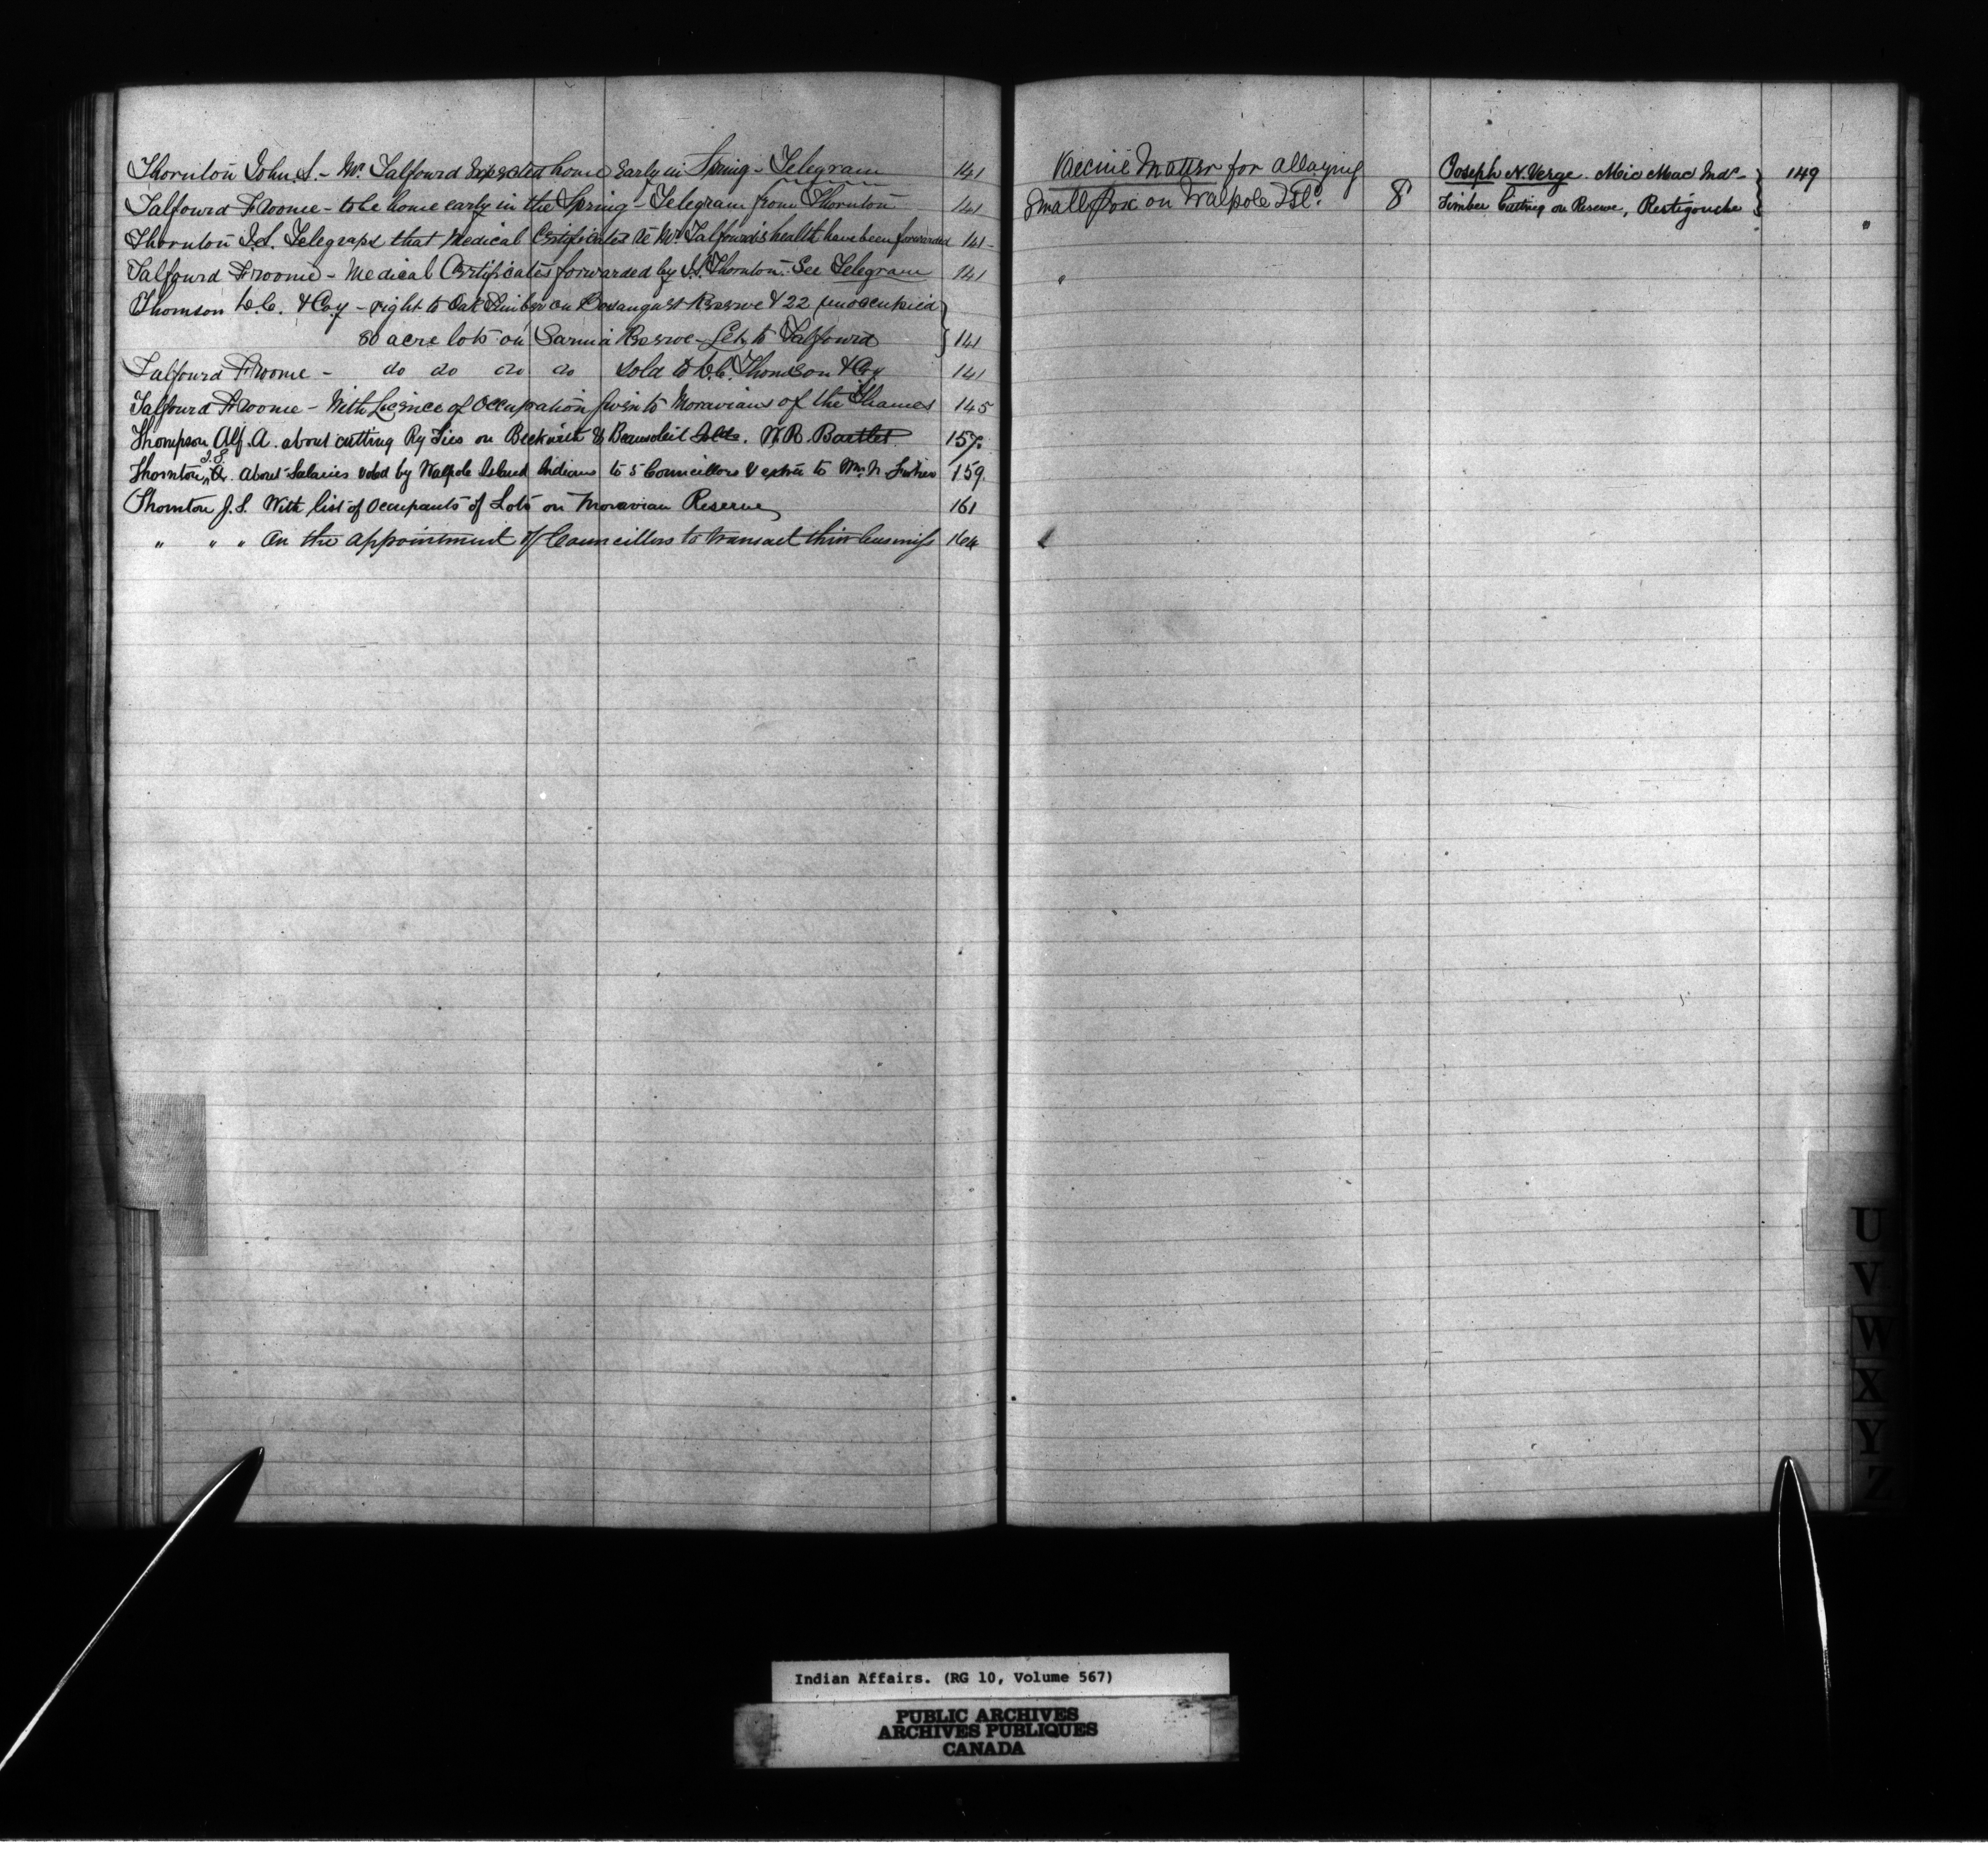 Thornton John S. - Mr. Talfourd Expected home Early in Spring - Telegram 141
Talfourd Froome - to be home early in the Spring - Telegram from Thornton 141
Thornton J.S. Telegraphs that Medical Certificates re Mr. Talfourd's health have been forwarded 141
Talfourd Froome - Medical Certificates forwarded by J.S. Thornton. See Telegram 141
Thomson D.C. & Coy - right to Oak Timber on Bosanquet Reserve & 22 unoccupied
80 acre lots on Sarnia Reserve - Let to Talfourd 141
Talfourd Froome - do do do do sold to D.C. Thomson & Coy 141
Talfourd Froome - With Licence of Occupation given to Moravians of the Thames 145
Thompson Alf. A. about cutting Ry Ties on Beckwith & Beausoleil Islds. W.R. Bartlet 157.
Thornton J.S. About Salaries voted by Walpole Island Indians to 5 Councillors & extra to Wm. N. 159.
Thornton J.S. With list of Occupants of Lots on Moravian Reserve 161
" " " On the appointment of Councillors to transact their business 164
Vaccine Matter for allaying
Small Pox on Walpole Isld. 8
Joseph N. Verge. Mic Mac Indn.
Timber Cutting on Reserve, Restigouche 149
U
V
W
X
Y
Z
Indian Affairs. (RG 10, Volume 567)
PUBLIC ARCHIVES
ARCHIVES PUBLIQUES
CANADA